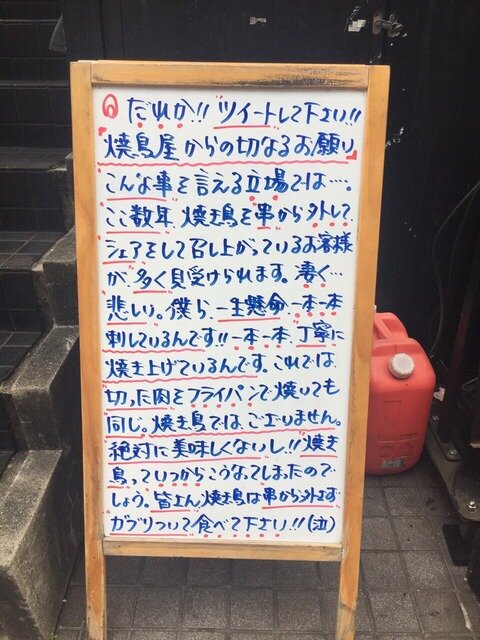 だれか!!ツイートして下さい!!
焼鳥屋からの切なるお願い
こんな事を言える立場では…。
ここ数年、焼き鳥を串から外して
シェアをして召し上がっているお客様
が、多く見受けられます。凄く…
悲しい。僕ら、一生懸命、一本一本
刺しているんです!!一本一本、丁寧に
焼き上げているんです。これでは、
切った肉をフライパンで焼いても
同じ。焼き鳥では、ございません。
絶対に美味しくないし!!焼き
鳥っていつからこうなってしまったので
しょう。皆さん、焼き鳥は串から外さず
ガブリついて食べて下さい!!(泣)